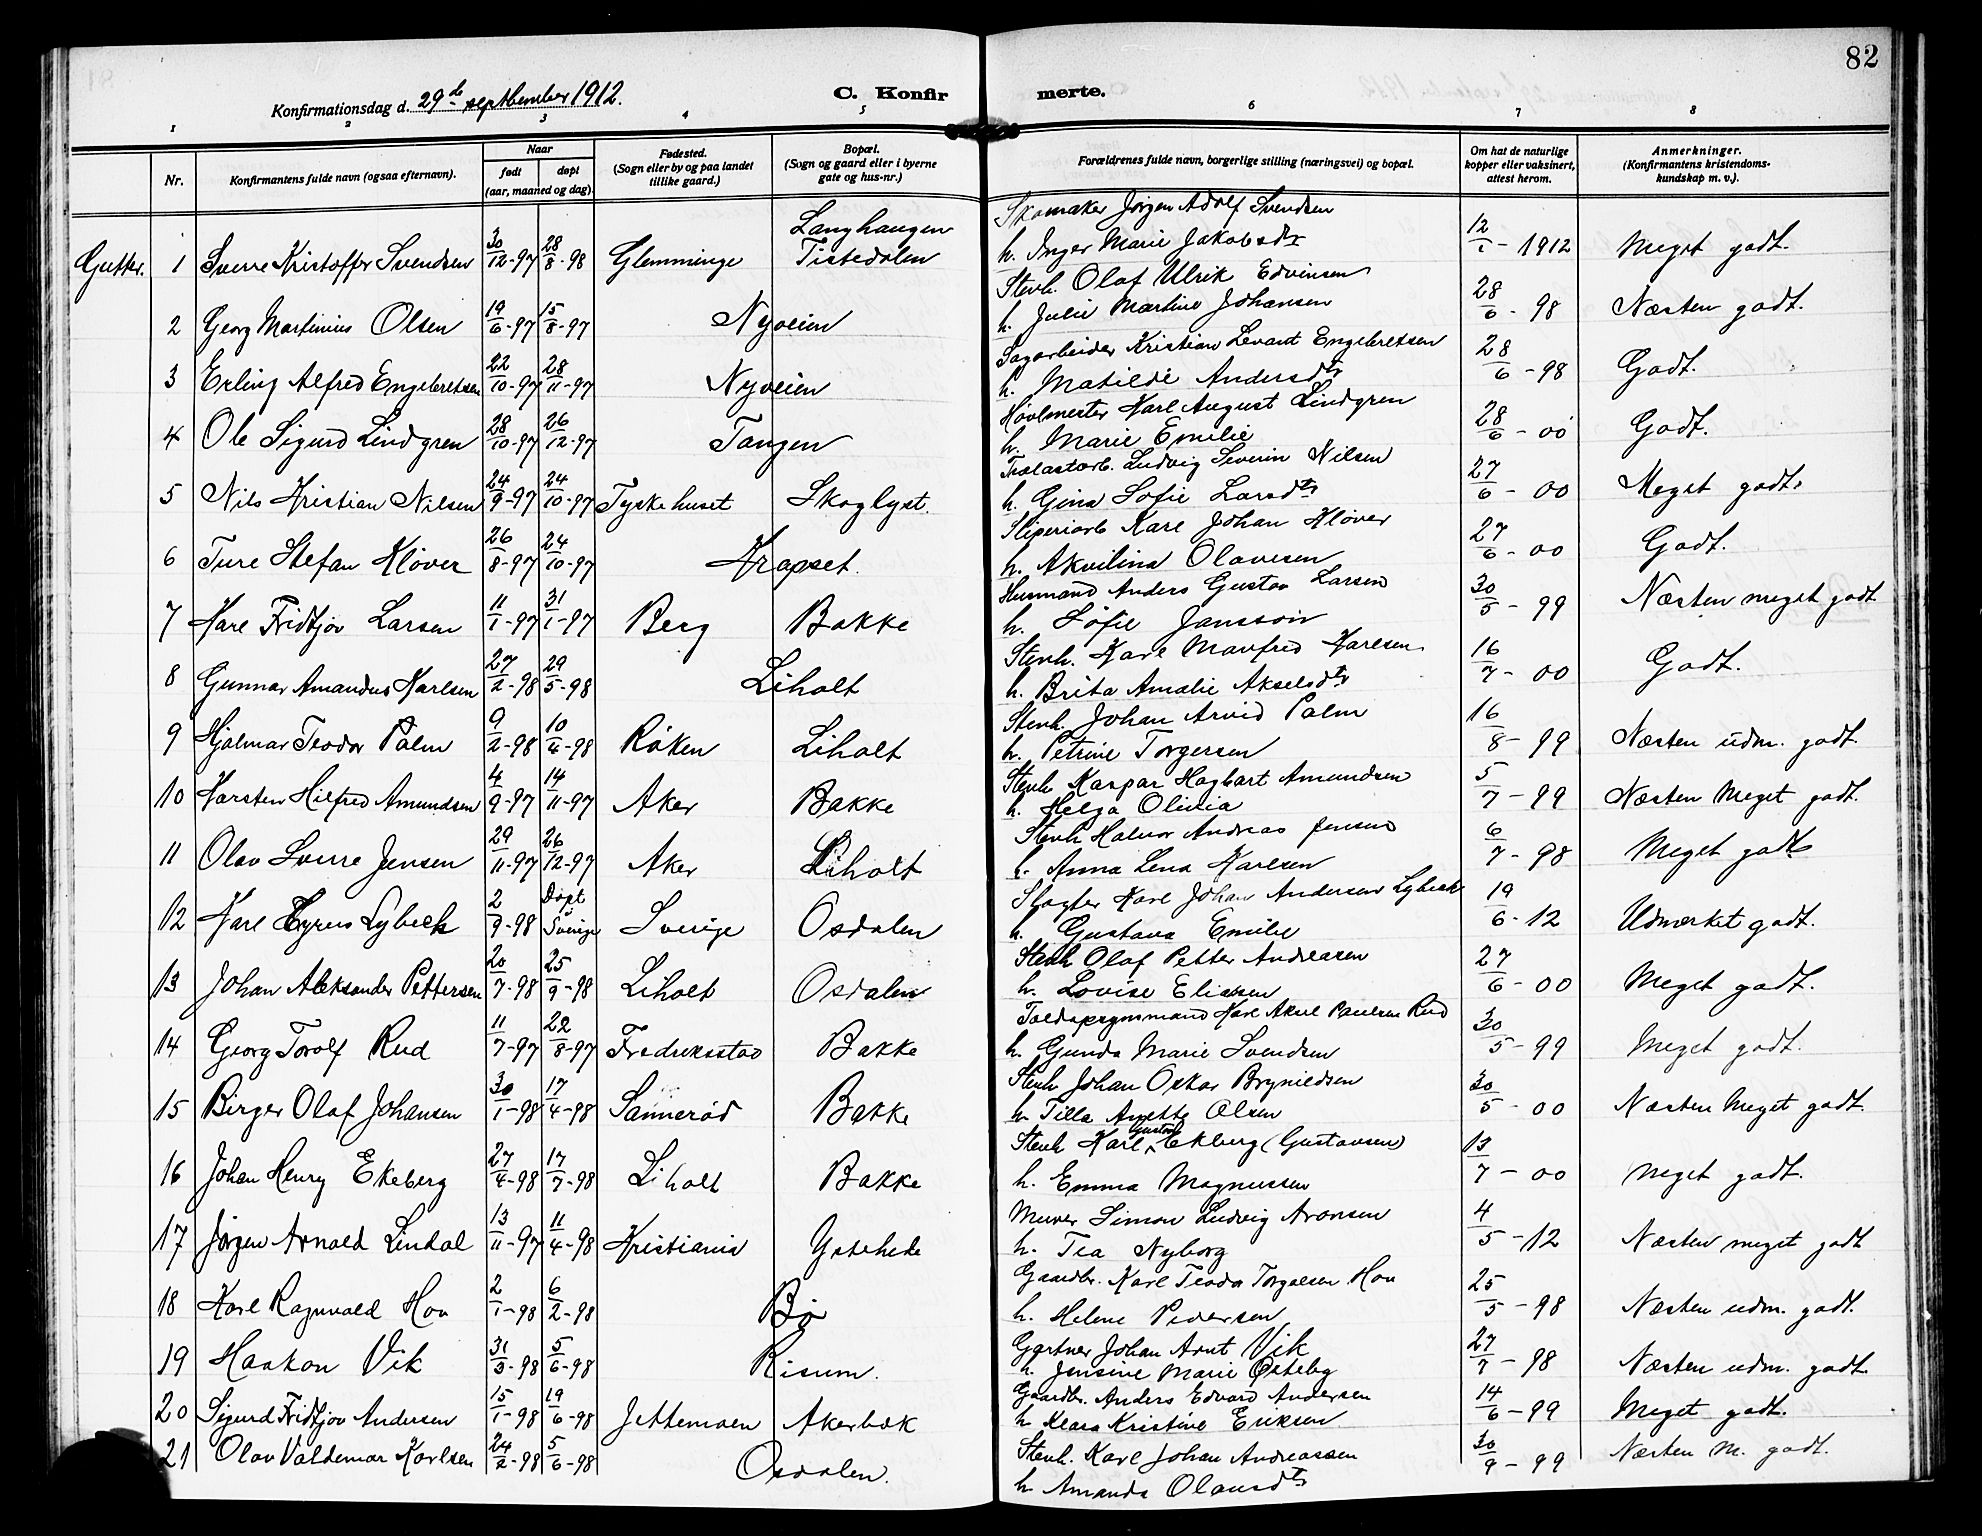 82
Konfirmationsdag d. 29de september 1912.
C. Konfirmerte.
1 2 3 4 5 6 7 8
Nr. Konfirmantens fulde navn (ogsaa efternavn). Naar født døpt (aar, maaned og dag). Fødested. (Sogn eller by og paa landet tillike gaard.) Bopæl. (Sogn og gaard eller i byerne gate og hus-nr.) Forældrenes fulde navn, borgerlige stilling (næringsvei) og bopæl. Om hat de naturlige kopper eller vaksinert, attest herom. Anmerkninger. (Konfirmantens kristendoms-kundskap m. v.).
Gutter. 1 Sverre Kristoffer Svendsen 30/12-97 28/8-98 Glemminge Langhaugen Tistedalen Skomaker Jørgen Adolf Svendsen
h. Inger Marie Jakobsdtr 12/1-1912 Meget godt.
2 Georg Martinius Olsen 19/6-97 15/8-97 Nyveien Stenh. Olaf Ulrik Edvinsen
h. Julie Martine Johansen 28/6-98 Næsten godt.
3 Erling Alfred Engebretsen 22/10-97 28/11-97 Nyveien Sagarbeider Kristian Levard Engebretsen
h. Matilde Andersdtr 28/6-98 Godt.
4 Ole Sigurd Lindgren 28/10-97 26/12-97 Tangen Høvlmester Karl August Lindgren
h. Marie Emilie 28/6-00 Godt.
5 Nils Kristian Nilsen 24/9-97 24/10-97 Tyskehuset Skoglyst. Trælastarb. Ludvig Severin Nilsen
h. Gina Sofie Larsdtr 27/6-00 Meget godt.
6 Ture Stefan Kløver 26/8-97 24/10-97 Krapset. Sliperiarb Karl Johan Kløver
h. Akvilina Olavesen 27/6-00 Godt.
7 Kare Fridtjov Larsen 11/1-97 31/1-97 Berg Bakke Husmand Anders Gustav Larsen
h. Sofie Jansson 30/5-99 Næsten meget godt
8 Gunnar Amandus Karlsen 27/2-98 29/5-98 Liholt Stenh. Karl Manfred Karlsen
h. Brita Amalie Akselsdtr 16/7-00 Godt.
9 Hjalmar Teodor Palm 9/2-98 10/4-98 Røken Liholt Stenh. Johan Arvid Palm
h. Petrine Torgersen 16/8-99 Næsten udm. godt.
10 Karsten Hilfred Amundsen 4/9-97 14/11-97 Aker Bakke Stenh Kaspar Hagbart Amundsen
h. Helga Olivia 5/7-99 Næsten Meget godt.
11 Olav Sverre Jensen 29/11-97 26/12-97 Aker Liholt Stenh Halvor Andreas Jensen
h. Anna Lena Karlsen 6/7-98 Meget godt
12 Karl Cyrus Lybeck 2/9-98 Døpt i Sverige Sverige Osdalen Slagter Karl Johan Andersen Lybeck
h. Gustava Emilie 19/6-12 Udmerket godt.
13 Johan Aleksander Pettersen 20/7-98 25/9-98 Liholt Osdalen Stenh Olaf Petter Andreasen
h. Lovise Eliasen 27/6-00 Meget godt.
14 Georg Torolf Rud 11/7-97 22/8-97 Fredriksstad Bakke Toldopsynsmand Karl Aksel Paulsen Rud
h. Gunda Marie Svendsen 30/5-99 Meget godt.
15 Birger Olaf Johansen 30/1-98 17/4-98 Sannerød Bakke Stenh Johan Oskar Brynildsen
h Tilla Anette Olsen 30/5-00 Næsten Meget godt
16 Johan Henry Ekeberg 27/4-98 17/7-98 Liholt Bakke Stenh Karl Gustav Ekberg (Gustavsen)
h. Emma Magnussen 13/7-00 meget godt.
17 Jørgen Arnold Lindal 13/11-97 11/4-98 Kristiania Ystehede Murer Simon Ludvig Aronsen
h. Tea Nyborg 4/5-12 Næsten meget godt
18 Karl Ragnvald Hov 2/1-98 6/2-98 Bø Gaardbr. Karl Teodor Torgalsen Hov
h. Helene Pedersen 25/5-98 Næsten udm. godt.
19 Haakon Vik 31/3-98 5/6-98 Risum. Gartner Johan Arnt Vik
h. Jensine Marie Østeby 27/7-98 Næsten udm. godt
20 Sigurd Fridtjov Andersen 15/1-98 19/6-98 Jettemoen Akerbæk Gaardbr. Anders Edvard Andersen
h Klara Kristine Eriksen 14/6-99 Meget godt.
21 Olav Valdemar Karlsen 24/2-98 5/6-98 Osdalen. Stenh. Karl Johan Andreassen
h Amanda Olausdtr 30/9-99 Næsten M. godt.